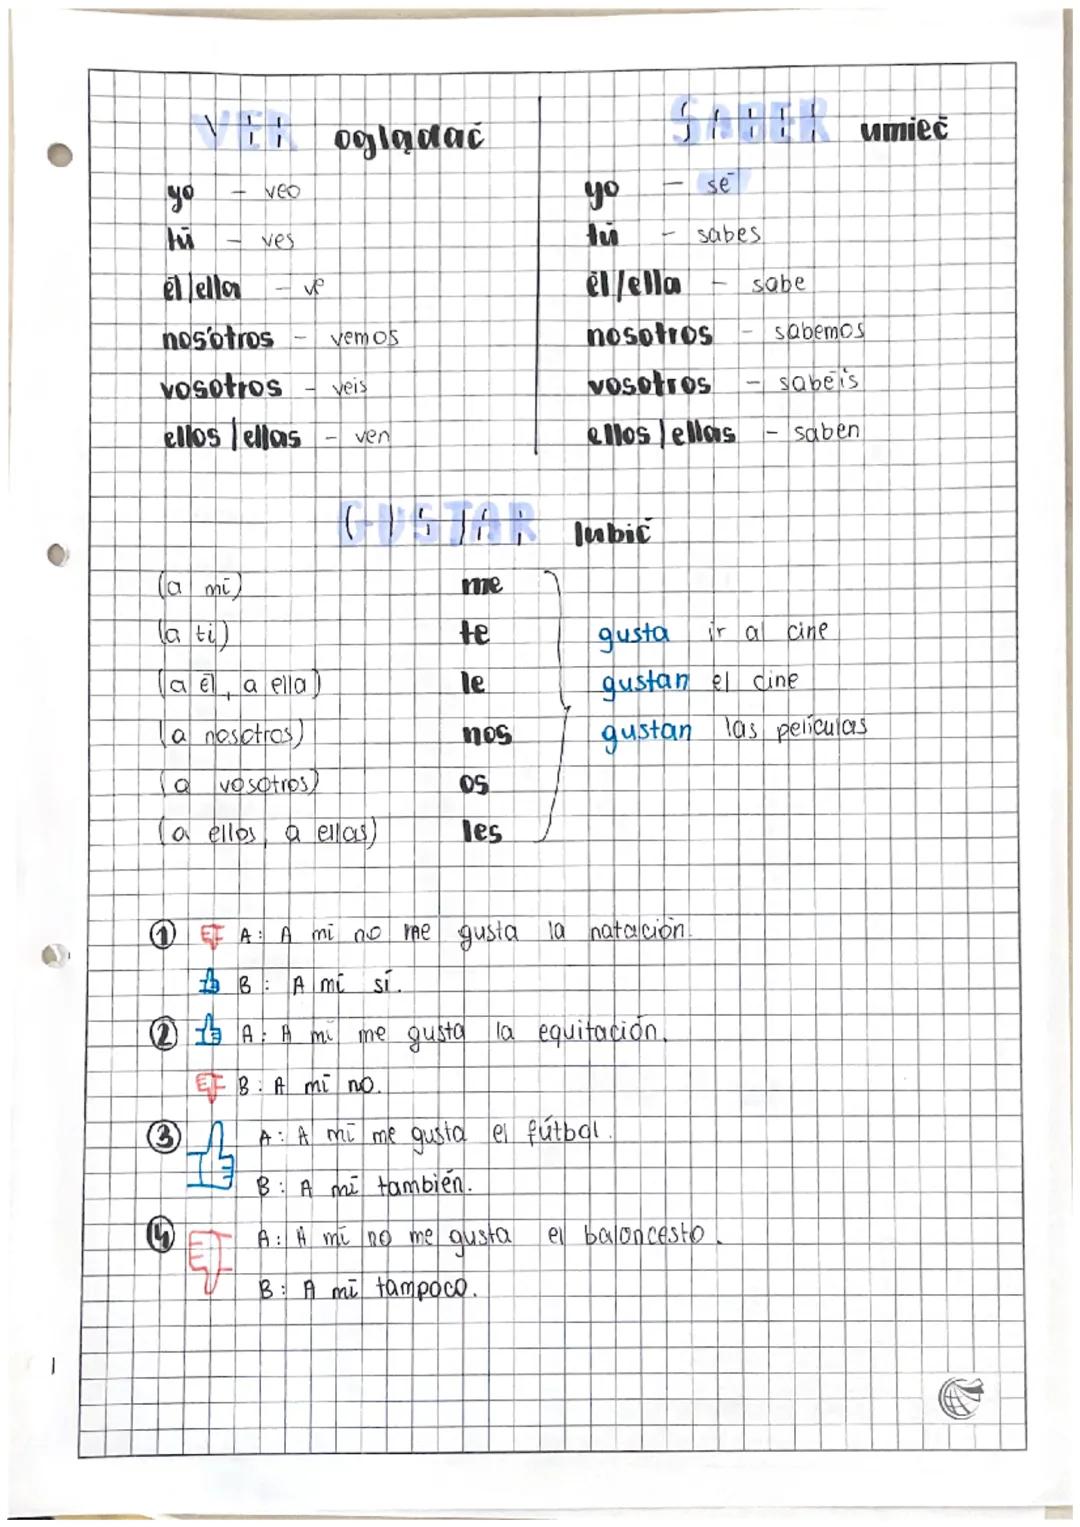 VER oglądać
yo - veo
tú - ves
él/ella - ve
nosotros - vemos
vosotros - veis
ellos/ellas - ven
SABER umieć
yo - sé
tú - sabes
él/ella - sabe
nosotros - sabemos
vosotros - sabéis
ellos/ellas - saben
GUSTAR lubić
(a mí) me
(a ti) te
(a él, a ella) le
(a nosotros) nos
(a vosotros) os
(a ellos, a ellas) les
gusta ir al cine
gustan el cine
gustan las películas
① A: A mí no me gusta la natación.
B: A mí sí.
② A: A mí me gusta la equitación.
B: A mí no.
③ A: A mí me gusta el fútbol.
B: A mí también.
④ A: A mí no me gusta el baloncesto.
B: A mí tampoco.